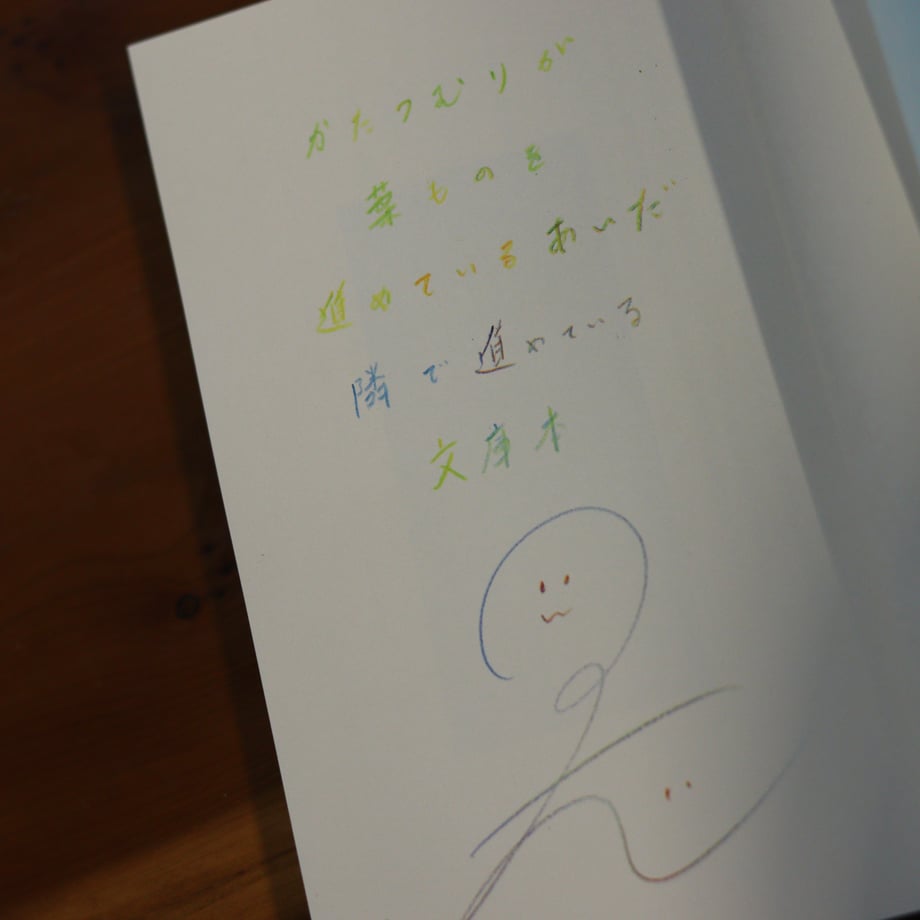 かたつむりが
葉ものを
進めているあいだ
隣で進めている
文庫本